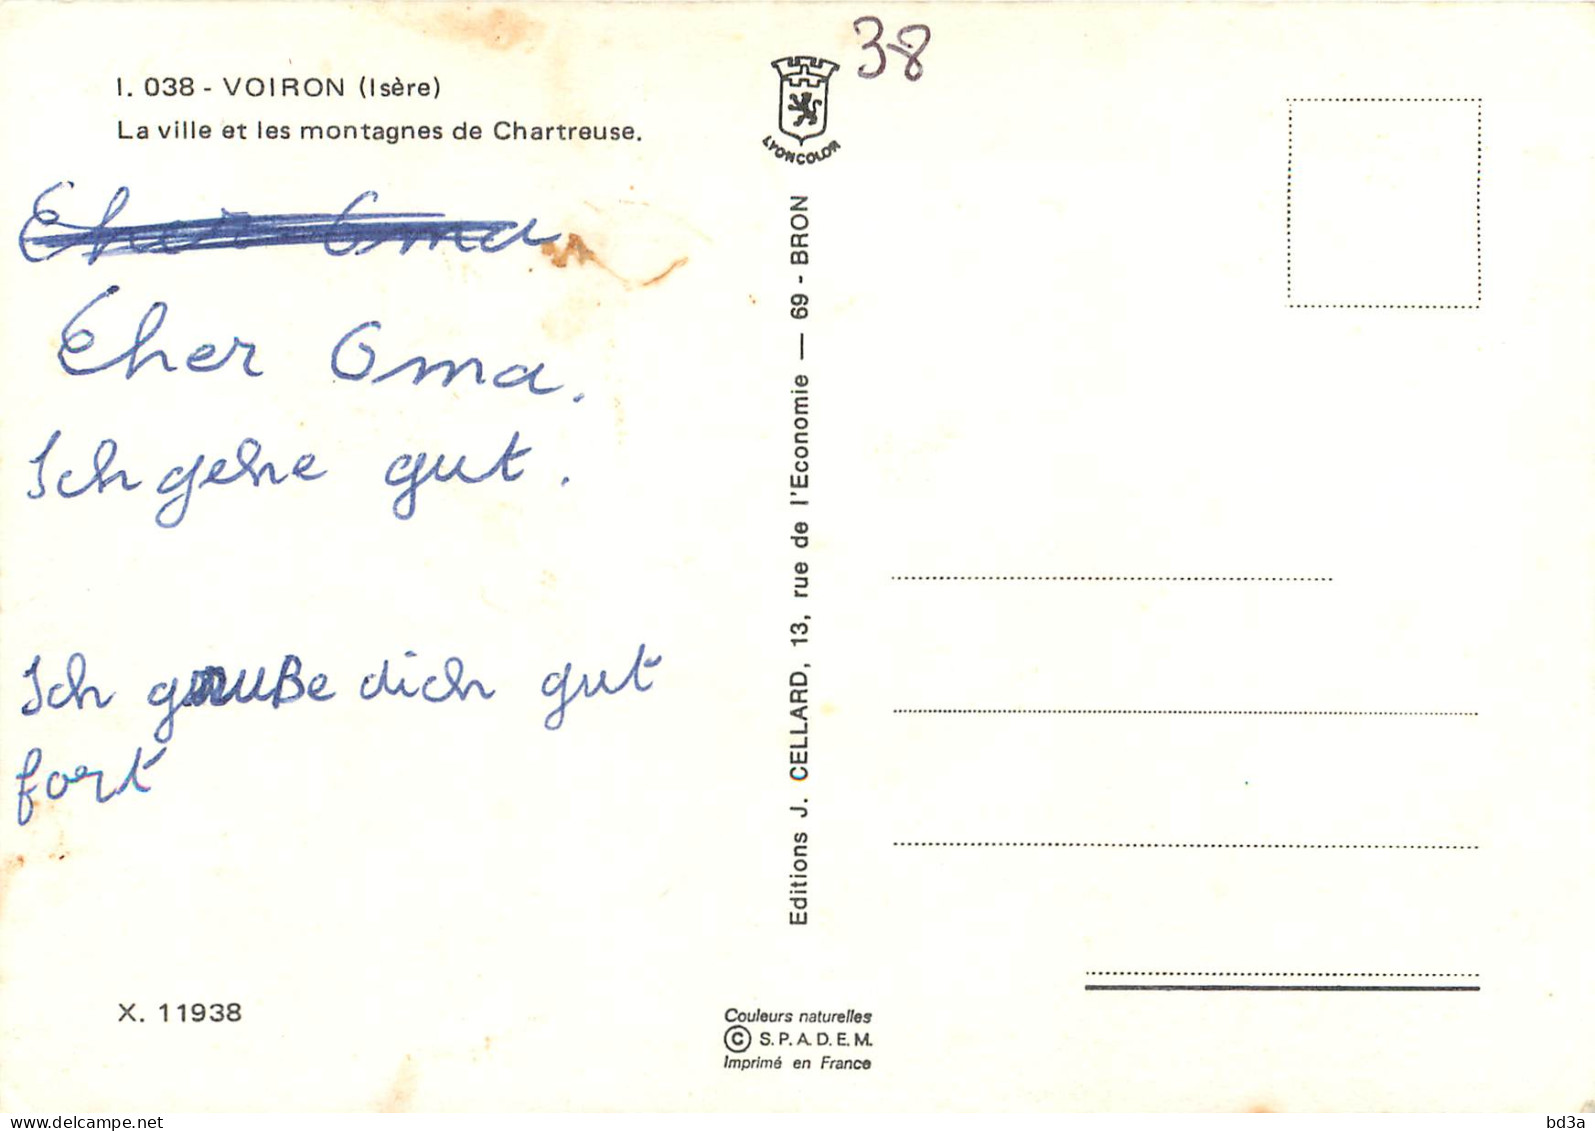 I. 038 - VOIRON (Isère)
La ville et les montagnes de Chartreuse.
Eher Oma
Eher Oma.
Ich gehe gut.
Ich gruße dich gut
fort
X. 11938
LYONCOLOR
38
Editions J. CELLARD, 13, rue de l'Economie — 69 - BRON
Couleurs naturelles
© S.P.A.D.E.M.
Imprimé en France
www.delcampe.net
bd3a